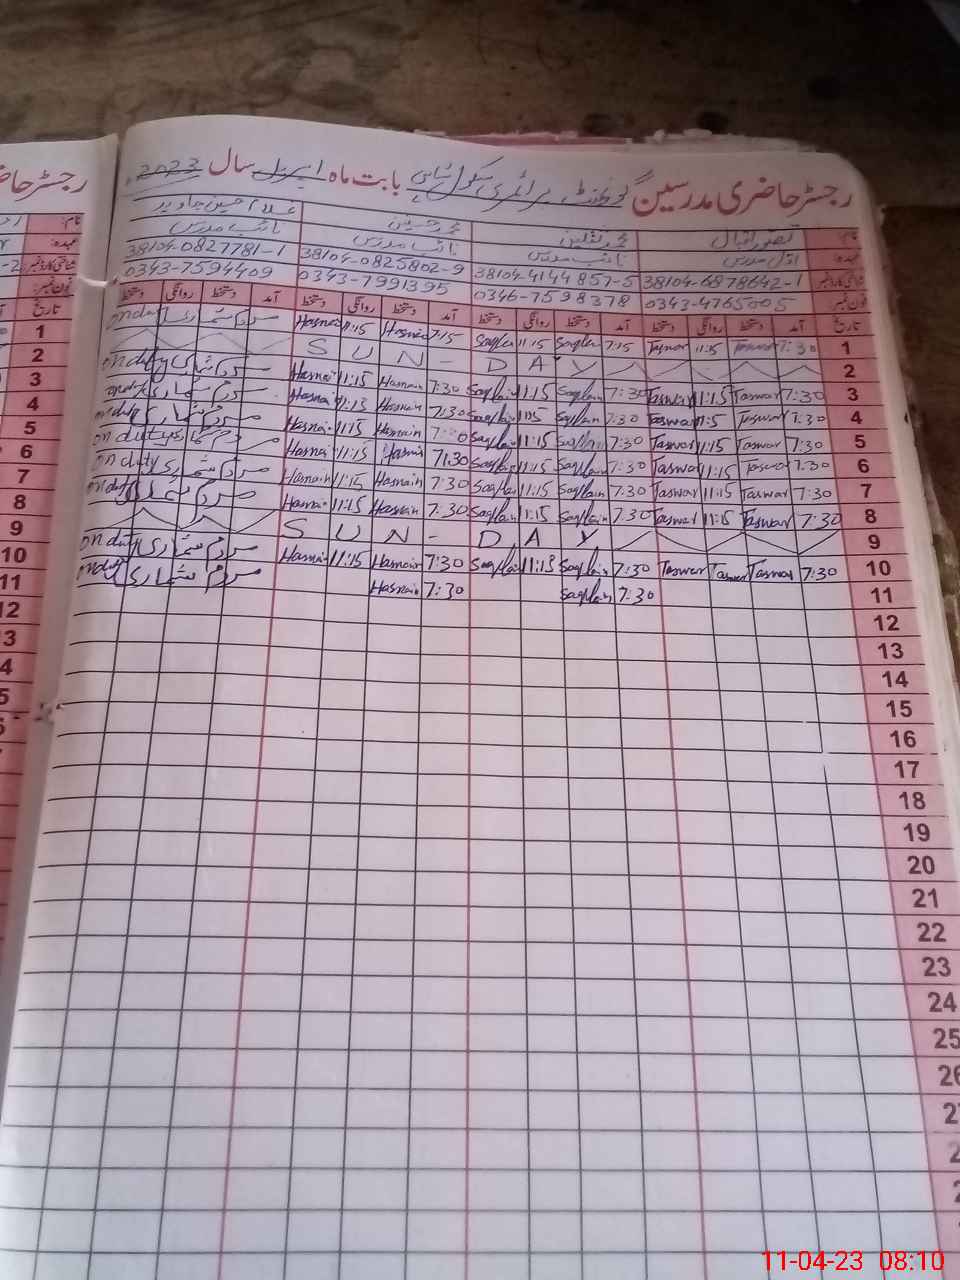 رجسٹر حاضری مدرسین گورنمنٹ پرائمری سکول بابت ماہ اپریل سال 2023
نام: تصور اقبال محمد ثقلین محمد حسنین غلام حسین جاوید
عہدہ: اول مدرس نائب مدرس نائب مدرس نائب مدرس
شناختی کارڈ نمبر 38104-6878642-1 38104-4144857-5 38104-0825802-9 38104-0827781-1
فون نمبر 0343-4765005 0346-7598378 0343-7991395 0343-7594409
تاریخ آمد دستخط روانگی دستخط آمد دستخط روانگی دستخط آمد دستخط روانگی دستخط آمد دستخط روانگی دستخط
1 7:30 Taswar 11:15 Taswar 7:15 Saqlain 11:15 Saqlain 7:15 Hasnain 11:15 Hasnain مردم شماری on duty
2 SUN-DAY
3 7:30 Taswar 11:15 Taswar 7:30 Saqlain 11:15 Saqlain 7:30 Hasnain 11:15 Hasnain مردم شماری on duty
4 7:30 Taswar Taswar 7:30 Saqlain Saqlain 7:30 Hasnain 11:15 Hasnain مردم شماری on duty
5 7:30 Taswar 11:15 Taswar 7:30 Saqlain 11:15 Saqlain Hasnain 11:15 Hasnain مردم شماری on duty
6 7:30 Taswar 11:15 Taswar 7:30 Saqlain 11:15 Saqlain 7:30 Hasnain 11:15 Hasnain مردم شماری on duty
7 7:30 Taswar 11:15 Taswar 7:30 Saqlain 11:15 Saqlain 7:30 Hasnain 11:15 Hasnain مردم شماری on duty
8 7:30 Taswar 11:15 Taswar 7:30 Saqlain 11:15 Saqlain 7:30 Hasnain 11:15 Hasnain مردم شماری on duty
9 SUN-DAY
10 7:30 Taswar Taswar Taswar 7:30 Saqlain 11:15 Saqlain 7:30 Hasnain 11:15 Hasnain مردم شماری on duty
11 7:30 Saqlain 7:30 Hasnain مردم شماری on duty
12
13
14
15
16
17
18
19
20
21
22
23
24
25
26
11-04-23 08:10